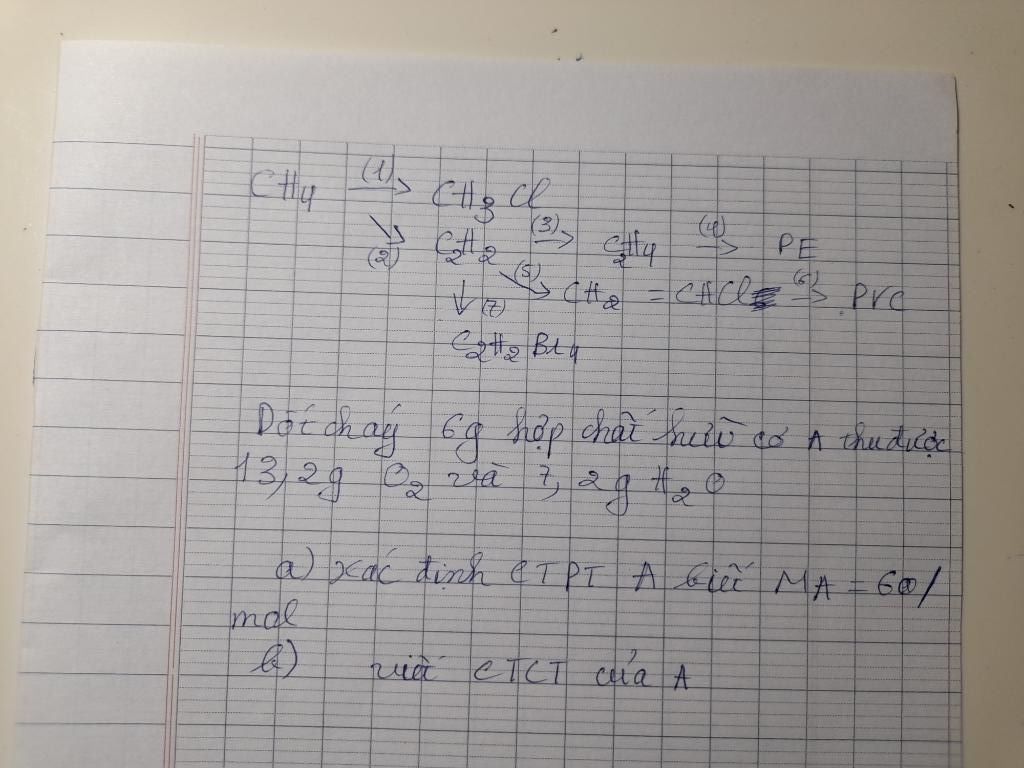 CH4 (1)→ CH3Cl
(2)↘ C2H2 (3)→ C2H4 (4)→ PE
(5)↘ CH2 = CHCl (6)→ PVC
↓(7)
C2H2Br4
Đốt cháy 6g hợp chất hữu cơ A thu được
13,2g O2 và 7,2g H2O
a) Xác định CTPT A biết MA = 60/
mol
b) viết CTCT của A